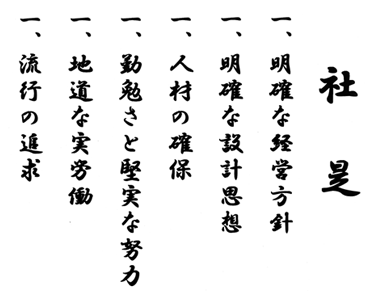 社是
一、明確な経営方針
一、明確な設計思想
一、人材の確保
一、勤勉さと堅実な努力
一、地道な実労働
一、流行の追求